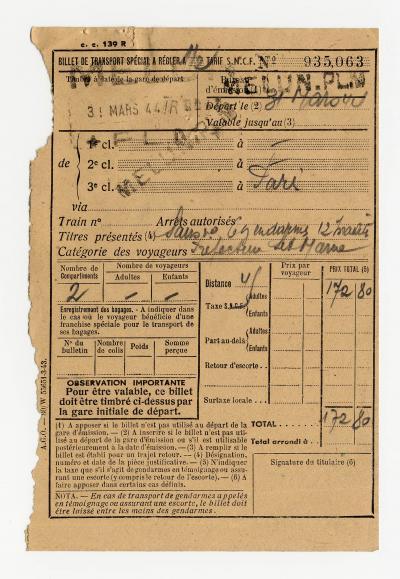 c. c. 139 R
BILLET DE TRANSPORT SPÉCIAL A RÉGLER TARIF S.N.C.F. Nº 935,063
MELUN
MELUN. PLM
Timbre à date de la gare de départ
d'émission (1)
31 MARS 44
Départ le (2) 31 Mars
Valable jusqu'au (3)
MELUN
1re cl. à —
de 2e cl. à —
3e cl. à Paris
via
Train nº Arrêts autorisés
Titres présentés (4) 6 gendarmes 12
Catégorie des voyageurs Préfecture Marne
Nombre de Compartiments
Nombre de voyageurs
Adultes
Enfants
2 — —
Enregistrement des bagages. - A indiquer dans
le cas où le voyageur bénéficie d'une
franchise spéciale pour le transport de
ses bagages.
Nº du bulletin
Nombre de colis
Poids
Somme perçue
OBSERVATION IMPORTANTE
Pour être valable, ce billet
doit être timbré ci-dessus par
la gare initiale de départ.
Prix par voyageur
PRIX TOTAL (6)
Distance
Taxe S.N.C.F. Adultes Enfants
172 80
Part au-delà Adultes Enfants
Retour d'escorte
Surtaxe locale
TOTAL 172 80
Total arrondi à
Signature du titulaire (6)
(1) A apposer si le billet n'est pas utilisé au départ de la
gare d'émission. — (2) A inscrire si le billet n'est pas uti-
lisé au départ de la gare d'émission ou s'il est utilisable
postérieurement à la date d'émission. — (3) A remplir si le
billet est établi pour un trajet retour. — (4) Désignation,
numéro et date de la pièce justificative. — (5) N'indiquer
la taxe que s'il s'agit de gendarmes en témoignage ou assu-
rant une escorte (y compris le retour de l'escorte). — (6) A
faire apposer dans certains cas définis.
NOTA. — En cas de transport de gendarmes appelés
en témoignage ou assurant une escorte, le billet doit
être laissé entre les mains des gendarmes.